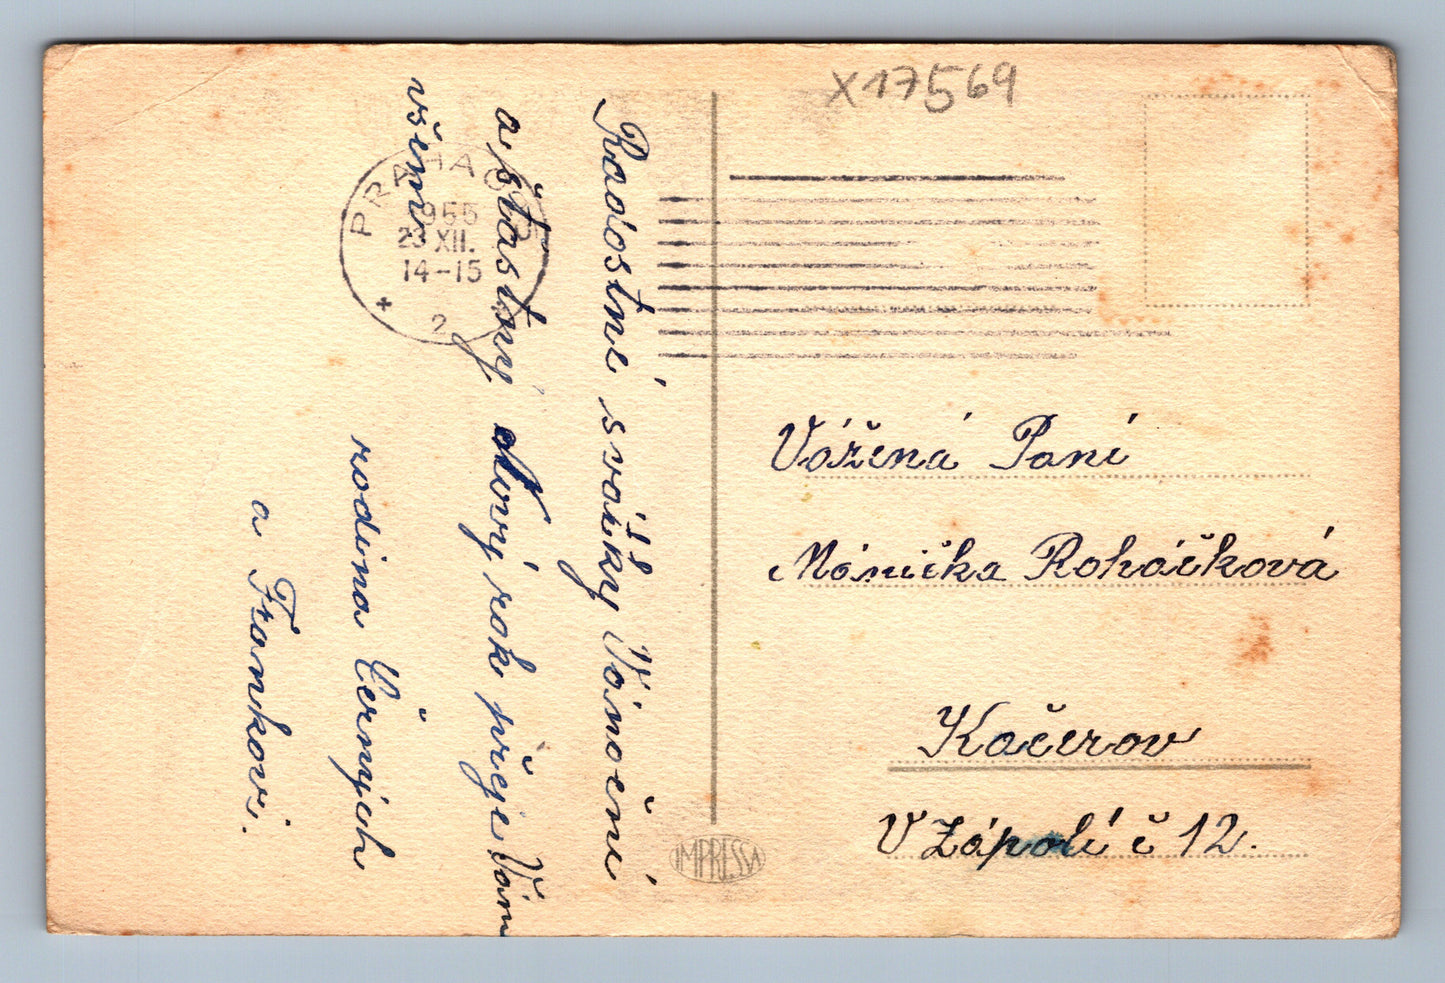 X17569
Radostné svátky Vánoční
a šťastný Nový rok přeje Vám
všem
rodina Černých
a Frankovi.
PRAHA
1955
23 XII.
14-15
2
Vážená Paní
Mánička Roháčková
Kačerov
V Zápolí č 12.
IMPRESSA